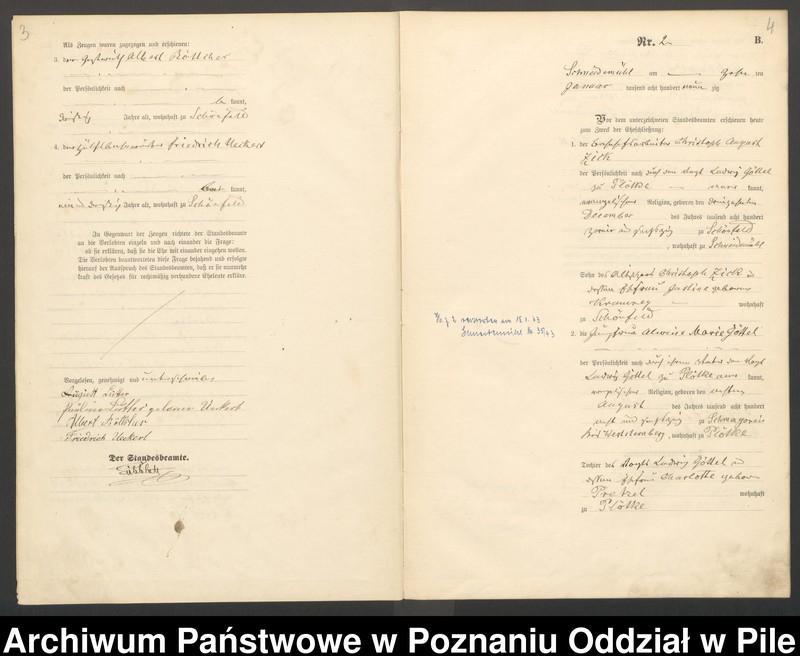 3
Als Zeugen waren zugezogen und erschienen:
3. der Albert Böttcher
der Persönlichkeit nach
be kannt,
dreißig Jahre alt, wohnhaft zu Schönfeld
4. der Friedrich Ueckert
der Persönlichkeit nach
kannt,
Jahre alt, wohnhaft zu Schönfeld
In Gegenwart der Zeugen richtete der Standesbeamte
an die Verlobten einzeln und nach einander die Frage:
ob sie erklären, daß sie die Ehe mit einander eingehen wollen.
Die Verlobten beantworteten diese Frage bejahend und erfolgte
hierauf der Ausspruch des Standesbeamten, daß er sie nunmehr
kraft des Gesetzes für rechtmäßig verbundene Eheleute erkläre.
Vorgelesen, genehmigt und unterschrieben
August
Pauline geborene Ueckert
Albert Böttcher
Friedrich Ueckert
Der Standesbeamte.
4
Nr. 2
B.
Schneidemühl am ten
Januar tausend acht hundert neun zig
Vor dem unterzeichneten Standesbeamten erschienen heute
zum Zweck der Eheschließung:
1. der Bahnhofsarbeiter Christoph August
Zick
der Persönlichkeit nach durch den Vogt Ludwig Göttel
zu Plöttke kannt,
evangelischer Religion, geboren den dreizehnten
December des Jahres tausend acht hundert
zwei und sechszig zu Schönfeld
, wohnhaft zu Schneidemühl
Sohn des Christoph Zick und
dessen Ehefrau Justine geborene
wohnhaft
zu Schönfeld
2. die Jungfrau Alwine Marie Göttel
der Persönlichkeit nach durch ihren Vater den Vogt
Ludwig Göttel zu Plöttke kannt,
evangelischer Religion, geboren den ersten
August des Jahres tausend acht hundert
acht und sechszig zu
, wohnhaft zu Plöttke
Tochter des Vogts Ludwig Göttel und
dessen Ehefrau Charlotte geborene
Pretzel wohnhaft
zu Plöttke
verstorben am 18.1.43
Schneidemühl № 35/43
Archiwum Państwowe w Poznaniu Oddział w Pile